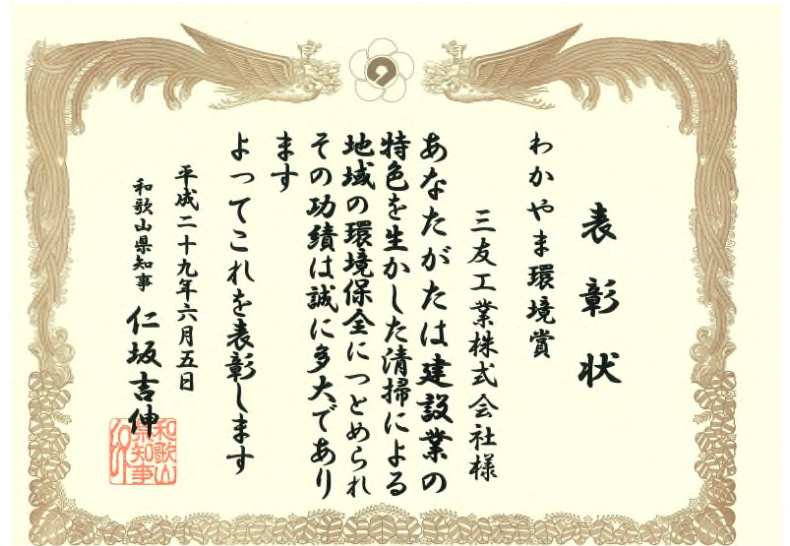 表彰状
わかやま環境賞
三友工業株式会社様
あなたがたは建設業の
特色を生かした清掃による
地域の環境保全につとめられ
その功績は誠に多大であり
ます
よってこれを表彰します
平成二十九年六月五日
和歌山県知事 仁坂吉伸
和歌山
県知事
印